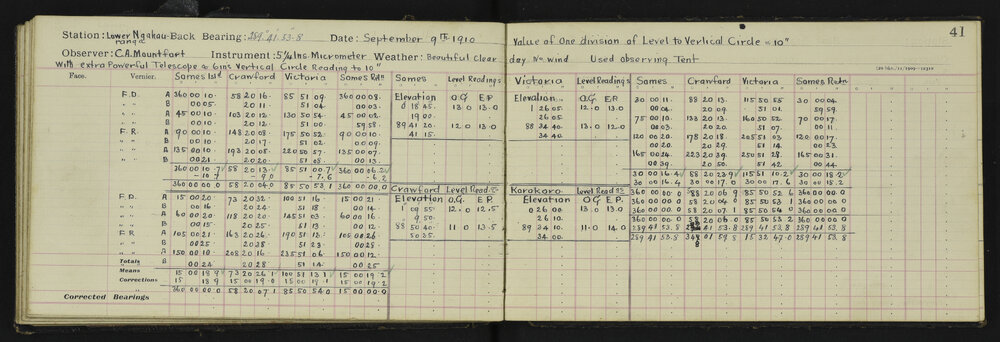 41
Station: Lower Ngakau- Back Bearing: 289° 41' 53.8 Date: September 9th 1910 Value of One division of Level to Vertical Circle = 10"
ranga
Observer: C.A. Mountfort Instrument: 5 Ins. Micrometer Weather: Beautiful Clear day No wind Used observing Tent
With extra Powerful Telescope & 6ins Vertical Circle Reading to 10"
Face. Vernier. Somes Isld Crawford Victoria Somes Rdn Somes Level Readings Victoria Level Readings Somes Crawford Victoria Somes Retn
F.D. A 360 00 10 58 20 16 85 51 09 360 00 08 Elevation O.G E.P. Elevation O.G E.P. 30 00 11 88 20 13 115 50 55 30 00 04
" " B 00 05 20 11 51 04 00 03 0 18 45 13 0 13 0 1 26 05 12 0 13 0 00 04 20 09 51 01 59 59
" " A 45 00 10 103 20 12 130 50 54 45 00 02 19 00 26 05 75 00 10 133 20 13 160 50 52 70 00 17
" " B 00 10 20 12 51 00 59 58 89 41 20 12 0 13 0 88 34 40 13 0 12 0 00 03 20 20 51 07 00 11
F.R. A 90 00 10 148 20 08 175 50 52 90 00 10 41 15 34 40 120 00 20 178 20 18 205 51 03 120 00 17
" " B 00 10 20 17 51 02 00 09 00 20 20 29 51 14 00 23
" " A 135 00 10 193 20 05 220 50 57 135 00 07 165 00 24 223 20 39 250 51 28 165 00 31
" " B 00 21 20 20 51 08 00 13 00 39 20 50 51 42 00 44
360 00 10.7 58 20 13 85 51 00.7 360 00 06.2 30 00 16.4 88 20 23.9 115 51 10.2 30 00 18.2
-10.7 -9.0 -7.6 -6.2 30 00 16.4 30 00 17.0 30 00 17.6 30 00 18.2
360 00 00 0 58 20 04 0 85 50 53 1 360 00 00 0 Crawford Level Read gs Korokoro Level Read gs 360 00 00 0 58 20 06 9 85 50 52 6 360 00 00 0
F.D. A 15 00 20 73 20 32 100 51 16 15 00 21 Elevation O.G E.P. Elevation O.G E.P. 360 00 00 0 58 20 04 0 85 50 53 1 360 00 00 0
" " B 00 16 20 24 51 18 00 14 1 09 55 12 0 12 5 0 26 00 13 0 13 0 360 00 00 0 58 20 07 1 85 50 54 0 360 00 00 0
" " A 60 00 20 118 20 20 145 51 03 60 00 16 9 50 26 10 360 00 00 0 58 20 06 0 85 50 53 2 360 00 00 0
" " B 00 15 20 25 51 13 00 12 88 50 40 11 0 13 5 89 34 10 11 0 14 0 289 41 53.8 289 41 53.8 289 41 53.8 289 41 53.8
F.R. A 105 00 21 163 20 26 190 51 12 105 00 26 50 35 34 00 289 41 53.8 348 01 59 8 15 32 47 0 289 41 53.8
" " B 00 25 20 28 51 23 00 28
" " A 150 00 10 208 20 16 235 51 06 150 00 12
Totals B 00 24 20 28 51 14 00 25
Means 15 00 18 9 73 20 26 1 100 51 13 1 15 00 19 2
Corrections 15 18 9 15 00 19 0 15 00 19 1 15 00 19 2
360 00 00 0 58 20 07 1 85 50 54 0 15 00 00 0
Corrected Bearings